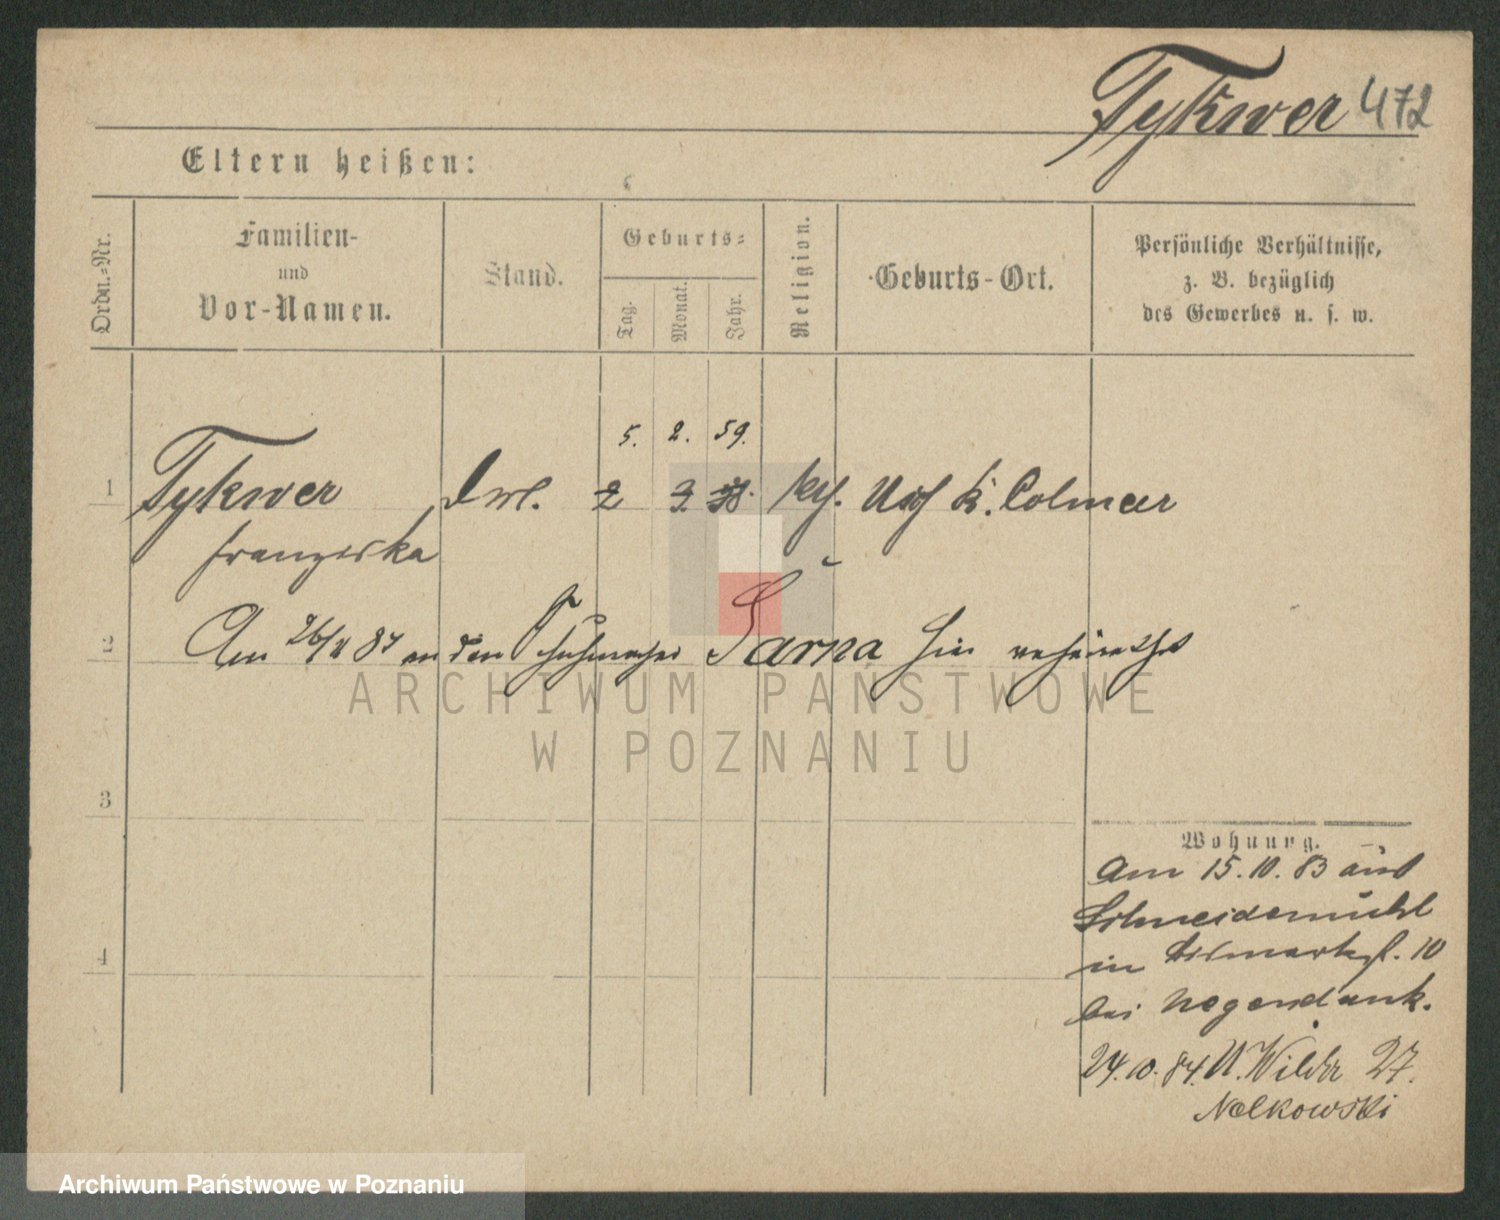 Tykwer 472
Eltern heißen:
Ordn.=Nr.
Familien-
und
Vor-Namen.
Stand.
Geburts=
Tag.
Monat.
Jahr.
Religion.
Geburts-Ort.
Persönliche Verhältnisse,
z. B. bezüglich
des Gewerbes u. s. w.
5. 2. 59.
1 Tykwer 2 3. kth. Usch K. Colmar
Franziska
2 Am 84 an den Schuhmacher Sarna hier verheirathet
3
Wohnung.
Am 15.10.83 aus
Schneidemühl
in 10
bei Negendank.
4
24.10.84. U. Wilda 27.
Nolkowski
ARCHIWUM PAŃSTWOWE
W POZNANIU
Archiwum Państwowe w Poznaniu